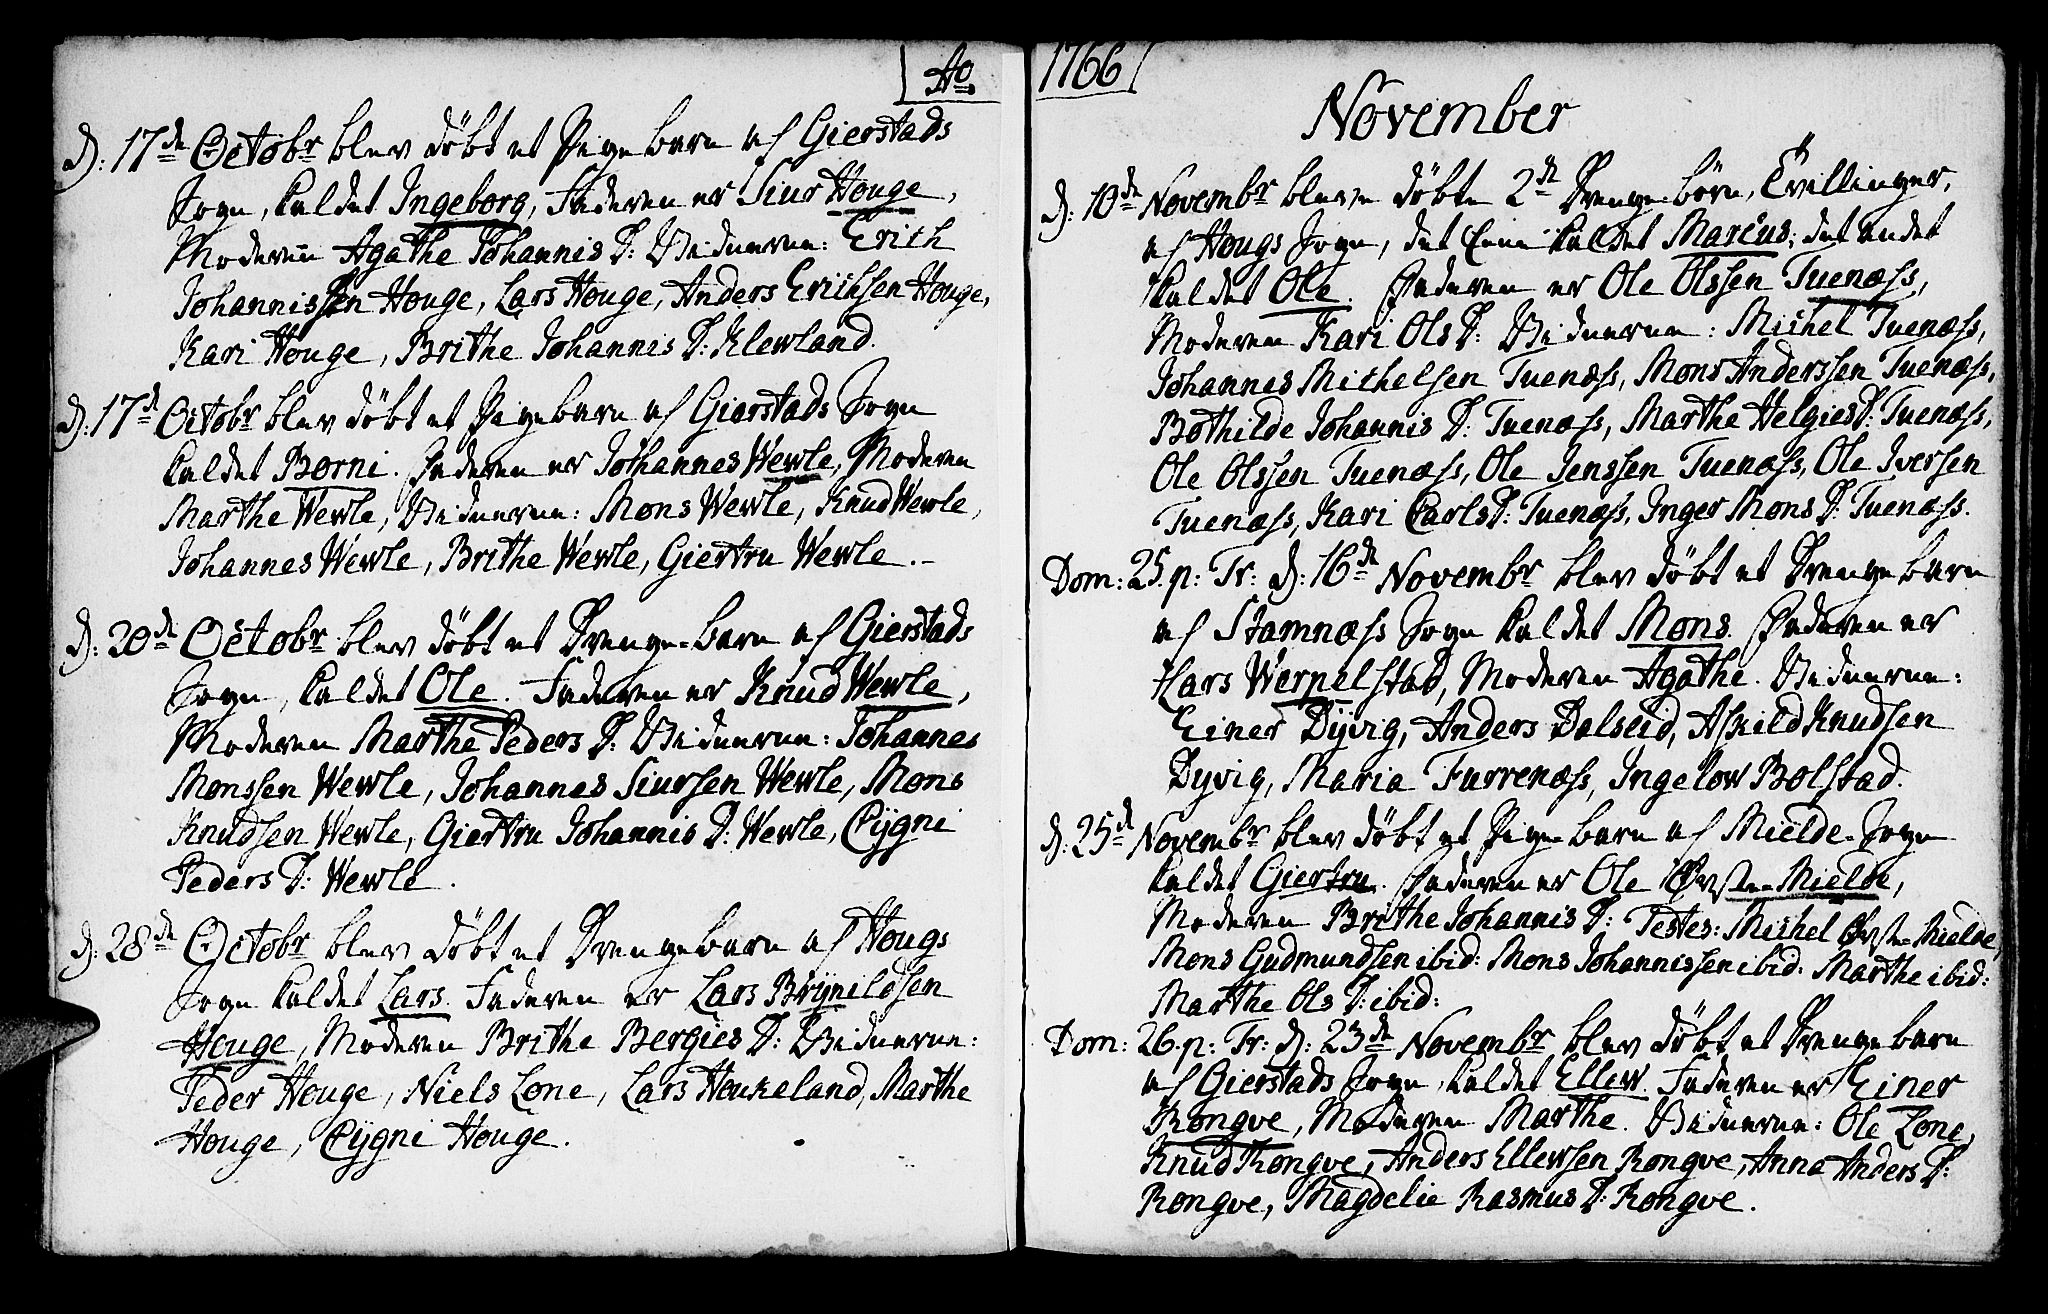 Ao
d: 17de Octobr blev döbt et Pige barn af Gierstads
Sogn, kaldet Ingeborg, Faderen er Siur Houge,
Moderen Agathe Johannis D: Vidnerne: Erich
Johannissen Houge, Lars Houge, Anders Erichsen Houge,
Kari Houge, Brithe Johannis D: Klewland.
d: 17de Octobr blev döbt et Pigebarn af Gierstads Sogn
kaldet Børni. Faderen er Johannes Wewle, Moderen
Marthe Wewle, Vidnerne: Mons Wewle, Knud Wewle,
Johannes Wewle, Brithe Wewle, Giertru Wewle.
d: 20de Octobr blev döbt et Drenge-barn af Gierstads
Sogn, kaldet Ole. Faderen er Knud Wewle,
Moderen Marthe Peders D: Vidnerne: Johannes
Monssen Wewle, Johannes Siursen Wewle, Mons
Knudsen Wewle, Giertru Johannis D: Wewle, Cÿgni
Peders D: Wewle.
d: 28de Octobr blev döbt et Drengebarn af Hougs
Sogn kaldet Lars. Faderen er Lars Brÿnildsen
Houge, Moderen Brithe Bergies D: Vidnerne:
Peder Houge, Niels Lone, Lars Houkeland, Marthe
Houge, Cÿgni Houge.
1766
November
d: 10de Novembr bleve döbte 2de Drenge-börn, Tvillinger,
af Hougs Sogn, det Eene kaldet Marcus, det andet
kaldet Ole. Faderen er Ole Olssen Tuenæss,
Moderen Kari Ols D: Vidnerne: Michel Tuenæss,
Johannes Michelsen Tuenæss, Mons Anderssen Tuenæss,
Bothilde Johannis D: Tuenæss, Marthe Helgies D: Tuenæss,
Ole Olssen Tuenæss, Ole Jenssen Tuenæss, Ole Iversen
Tuenæss, Kari Carls D: Tuenæss, Inger Mons D: Tuenæss.
Dom: 25. p: Tr: d: 16de Novembr blev döbt et Drengebarn
af Stamnæss Sogn kaldet Mons. Faderen er
Lars Werpelstad, Moderen Agathe. Vidnerne:
Einer Dÿvig, Anders Dalseid, Askild Knudsen
Dyvig, Maria Furrenæss, Ingelow Bolstad.
d: 25de Novembr blev döbt et Pige barn af Mielde-Sogn
kaldet Giertru. Faderen er Ole Øvste-Mielde,
Moderen Brithe Johannis D: Testes: Michel Øvste-Mielde,
Mons Gudmundsen ibid: Mons Johannissen ibid: Marthe ibid:
Marthe Ols D: ibid:
Dom: 26. p: Tr: d: 23de Novembr blev döbt et Drengebarn
af Gierstads Sogn, kaldet Ellew. Faderen er Einer
Rongve, Moderen Marthe. Vidnerne: Ole Lone,
Knud Rongve, Anders Ellewsen Rongve, Anna Anders D:
Rongve, Magdelie Rasmus D: Rongve.